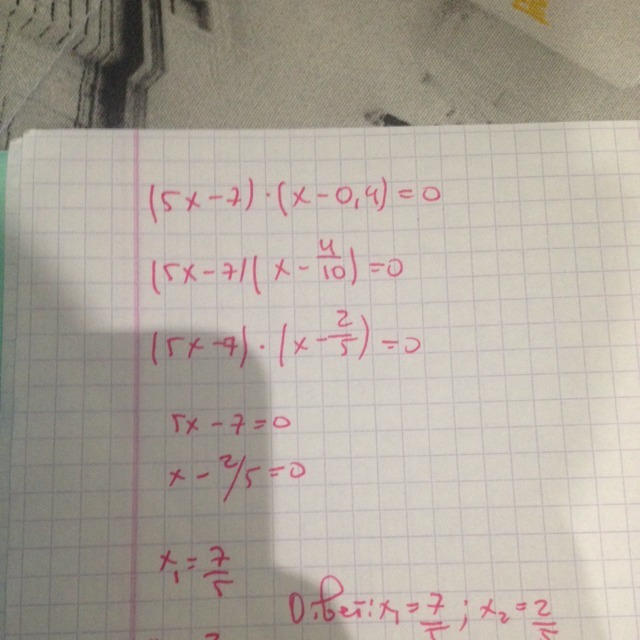 (5x-7)·(x-0,4)=0
(5x-7)(x-4/10)=0
(5x-7)·(x-2/5)=0
5x-7=0
x-2/5=0
x₁=7/5
Ответ: x₁=7/5; x₂=2/5